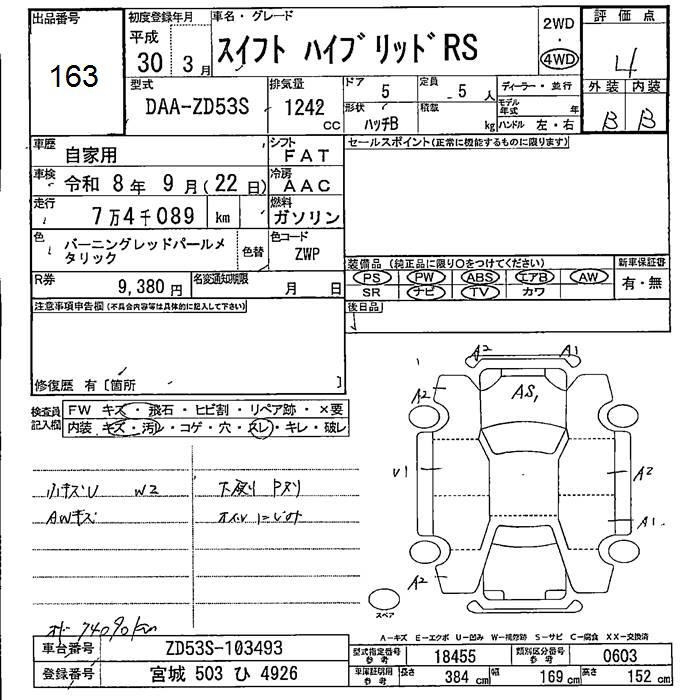 出品番号
163
初度登録年月
平成
30 3月
車名・グレード
スイフト ハイブリッドRS
2WD
・
4WD
評価点
4
外装 内装
B B
型式
DAA-ZD53S
排気量
1242
CC
ドア
5
定員
5 人
形状
ハッチB
積載
kg
ディーラー・並行
モデル年式 年
ハンドル 左・右
車歴
自家用
シフト
FAT
車検
令和 8年 9月(22日)
冷房
AAC
走行
7万4千089 km
燃料
ガソリン
色
バーニングレッドパールメタリック
色替
色コード
ZWP
R券
9,380円
名変通知期限
月 日
セールスポイント(正常に機能するものに限ります)
装備品 (純正品に限り○をつけてください)
PS PW ABS エアB AW
SR ナビ TV カワ
新車保証書
有・無
後日品
注意事項申告欄(不具合内容等は具体的に記入して下さい)
修復歴 有〔箇所 〕
検査員記入欄
FW キズ・飛石・ヒビ割・リペア跡・×要
内装 キズ・汚レ・コゲ・穴・スレ・キレ・破レ
小キズU W2
AWキズ
下廻り Pヌリ
オイルにじみ
74090km
A2 A1
A2
AS,
U1
A2
A1
A2
スペア
A-キズ E-エクボ U-凹み W-補修跡 S-サビ C-腐食 XX-交換済
車台番号
ZD53S-103493
登録番号
宮城 503 ひ 4926
型式指定番号
参考
18455
類別区分番号
参考
0603
車庫証明用
参考
長さ
384 cm
幅
169 cm
高さ
152 cm